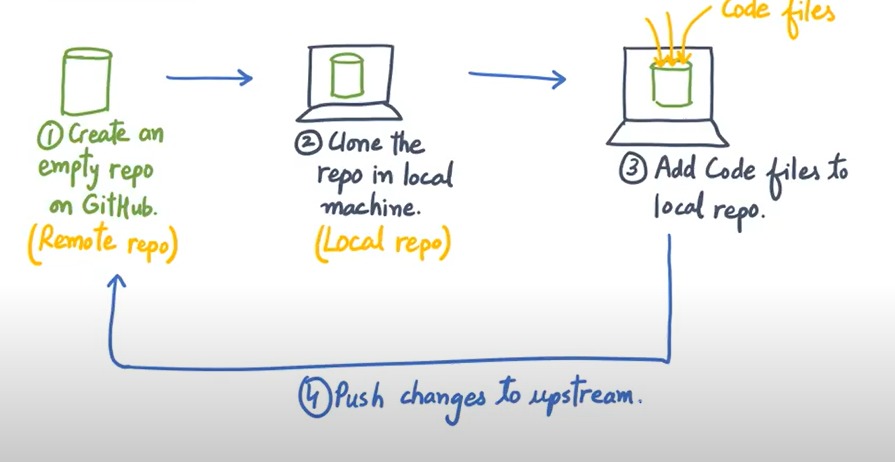 Code files
① Create an
empty repo
on GitHub.
(Remote repo)
② Clone the
repo in local
machine.
(Local repo)
③ Add Code files to
local repo.
④ Push changes to upstream.